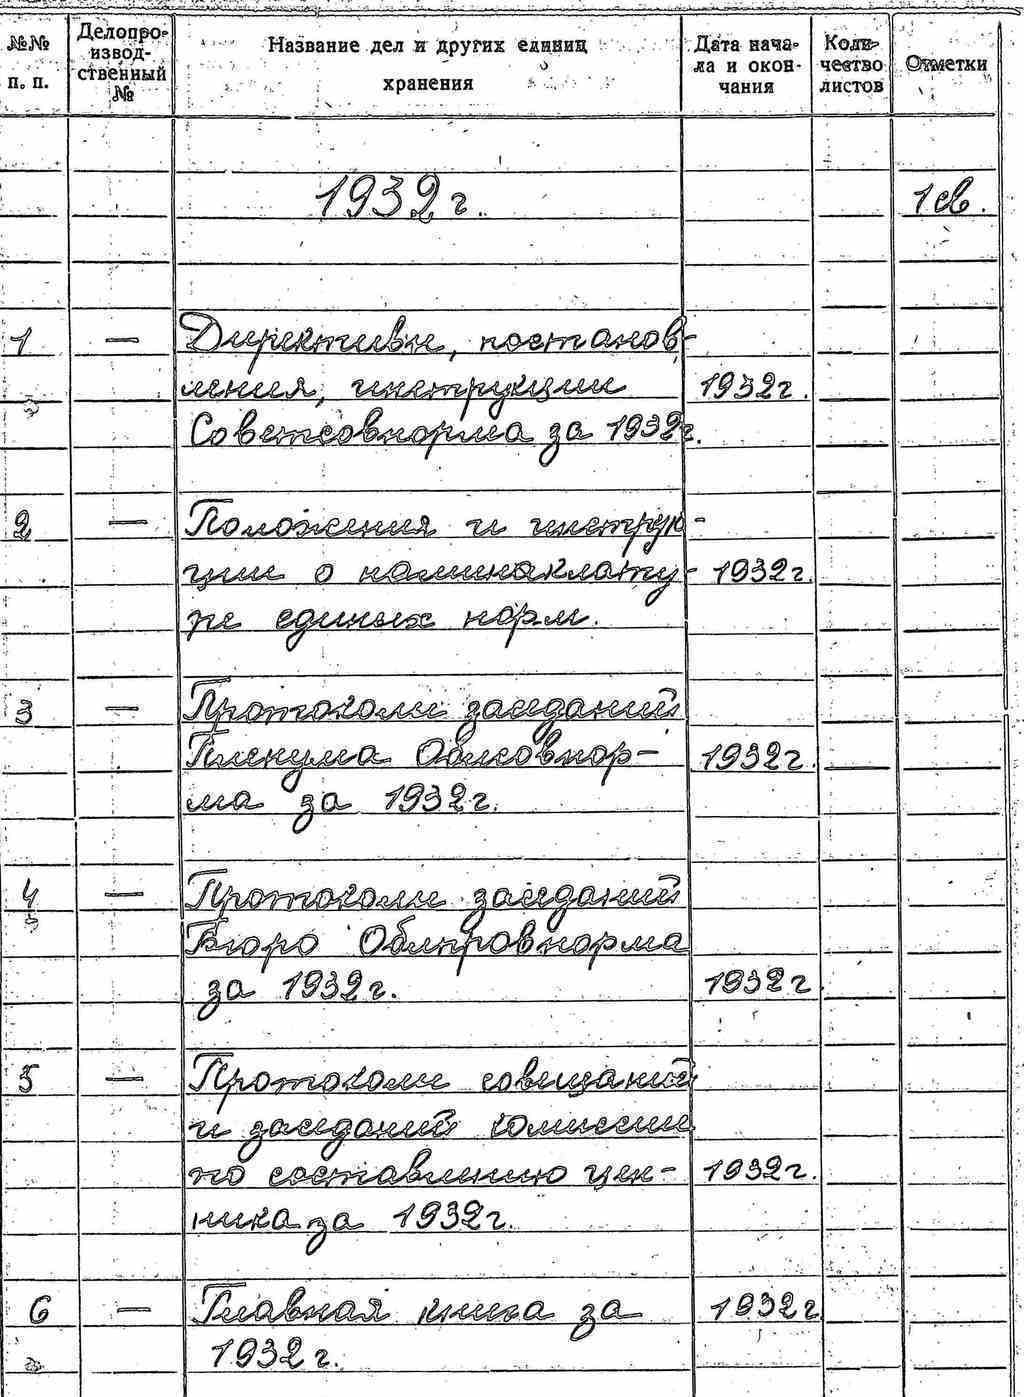 №№ п. п.
Делопроизводственный №
Название дел и других единиц хранения
Дата начала и окончания
Количество листов
Отметки
1932 г.
1 св.
1 — Директивы, постанов-
ления, инструкции 1932 г.
Советсовнорма за 1932 г.
2 — Положения и инструк-
ции о номинаклату- 1932 г.
ре единых норм.
3 — Протоколы заседаний
Пленума Облсовнор- 1932 г.
ма за 1932 г.
4 — Протоколы заседаний
Бюро Облпровнорма
за 1932 г. 1932 г
5 — Протоколы совещаний
и заседаний комиссии
по составлению цен- 1932 г.
ника за 1932 г.
6 — Главная книга за 1932 г.
1932 г.